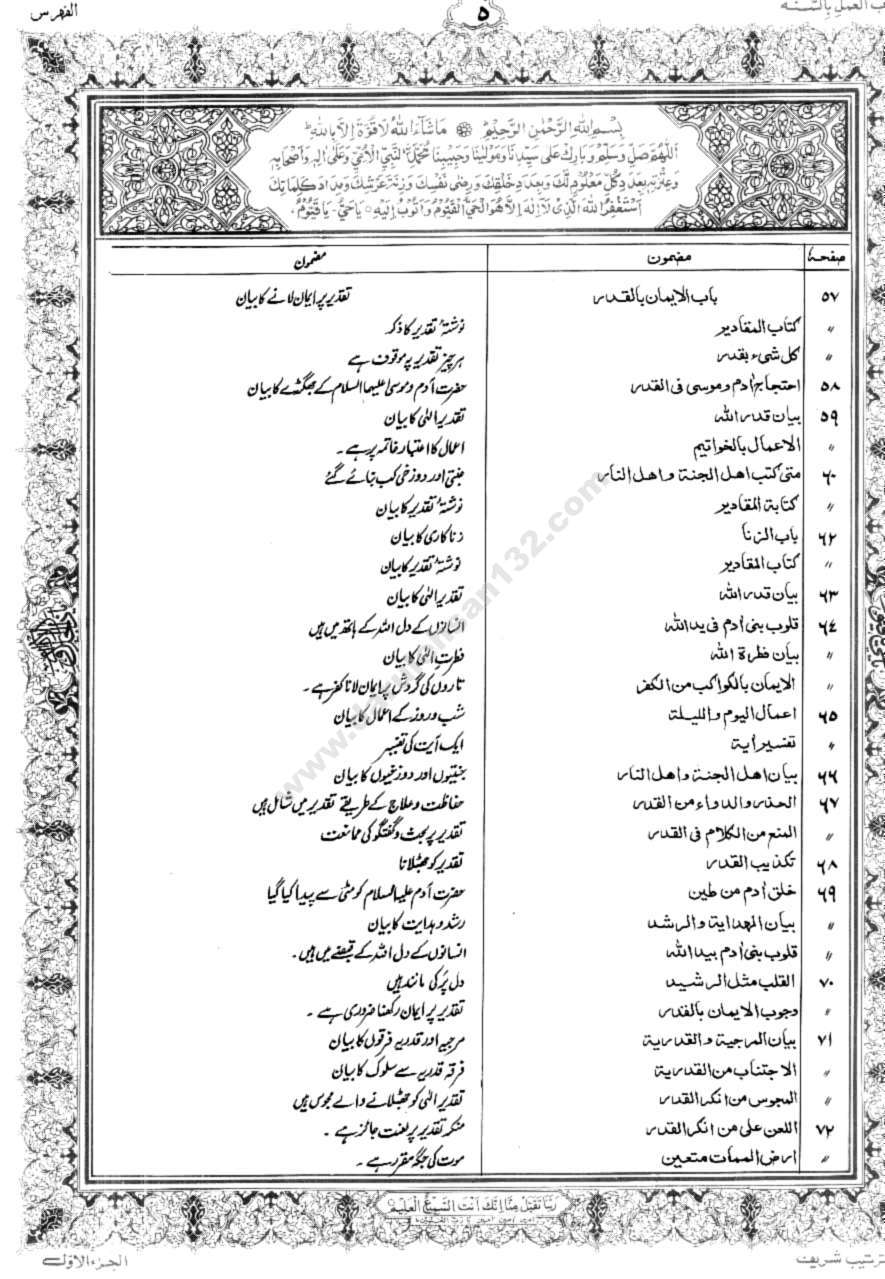 ب العمل بالسنه
۵
الفهرس
بِسْمِ اللهِ الرَّحْمٰنِ الرَّحِيْمِ مَا شَآءَ اللهُ لَا قُوَّةَ اِلَّا بِاللهِ
اَللّٰهُمَّ صَلِّ وَسَلِّمْ وَبَارِكْ عَلٰى سَيِّدِنَا وَمَوْلٰينَا وَحَبِيْبِنَا مُحَمَّدِ النَّبِيِّ الْاُمِّيِّ وَعَلٰى اٰلِهٖ وَاَصْحَابِهٖ
وَعِتْرَتِهٖ بِعَدَدِ كُلِّ مَعْلُوْمٍ لَّكَ وَبِعَدَدِ خَلْقِكَ وَرِضٰى نَفْسِكَ وَزِنَةَ عَرْشِكَ وَمِدَادَ كَلِمَاتِكَ
اَسْتَغْفِرُ اللهَ الَّذِىْ لَآ اِلٰهَ اِلَّا هُوَ الْحَيُّ الْقَيُّوْمُ وَاَتُوْبُ اِلَيْهِ يَا حَيُّ - يَا قَيُّوْمُ
صفحہ مضمون مضمون
۵۷ باب الایمان بالقدر تقدیر پر ایمان لانے کا بیان
〃 کتاب المقادیر نوشتۂ تقدیر کا ذکر
〃 کل شیء بقدر ہر چیز تقدیر پر موقوف ہے
۵۸ احتجاج اٰدم و موسی فی القدر حضرت آدم و موسیٰ علیہما السلام کے جھگڑے کا بیان
۵۹ بیان قدر اللہ تقدیر الٰہی کا بیان
〃 الاعمال بالخواتیم اعمال کا اعتبار خاتمہ پر ہے۔
۶۰ متی کتب اھل الجنة و اھل النار جنتی اور دوزخی کب بنائے گئے
〃 کتابة المقادیر نوشتۂ تقدیر کا بیان
۶۲ باب الزنا زنا کاری کا بیان
〃 کتاب المقادیر نوشتۂ تقدیر کا بیان
۶۳ بیان قدر اللہ تقدیر الٰہی کا بیان
۶۴ قلوب بنی اٰدم فی ید اللہ انسانوں کے دل اللہ کے ہاتھ میں ہیں
〃 بیان فطرة اللہ فطرت الٰہی کا بیان
〃 الایمان بالکواکب من الکفر تاروں کی گردش پر ایمان لانا کفر ہے۔
۶۵ اعمال الیوم واللیلة شب و روز کے اعمال کا بیان
〃 تفسیر اٰیة ایک آیت کی تفسیر
۶۶ بیان اھل الجنة و اھل النار جنتیوں اور دوزخیوں کا بیان
۶۷ الحذر والدواء من القدر حفاظت و علاج کے طریقے تقدیر میں شامل ہیں
〃 المنع من الکلام فی القدر تقدیر پر بحث و گفتگو کی ممانعت
۶۸ تکذیب القدر تقدیر کو جھٹلانا
۶۹ خلق اٰدم من طین حضرت آدم علیہ السلام کو مٹی سے پیدا کیا گیا
〃 بیان الھدایة والرشد رشد و ہدایت کا بیان
〃 قلوب بنی اٰدم بید اللہ انسانوں کے دل اللہ کے قبضے میں ہیں۔
۷۰ القلب مثل الرشید دل پر کی مانند ہیں
〃 وجوب الایمان بالقدر تقدیر پر ایمان رکھنا ضروری ہے۔
۷۱ بیان المرجیة والقدریة مرجیہ اور قدریہ فرقوں کا بیان
〃 الاجتناب من القدریة فرقہ قدریہ سے سلوک کا بیان
〃 المجوس من انکر القدر تقدیر الٰہی کو جھٹلانے والے مجوس ہیں
۷۲ اللعن علی من انکر القدر منکر تقدیر پر لعنت جائز ہے۔
〃 ارض الممات متعین موت کی جگہ مقرر ہے۔
رَبَّنَا تَقَبَّلْ مِنَّا اِنَّكَ اَنْتَ السَّمِيْعُ الْعَلِيْمُ
ترتیب شریف
الجزء الاول